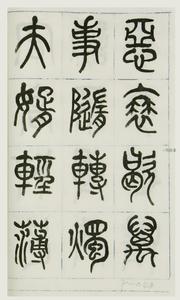 惡衰歇萬
事隨轉燭
夫婿輕薄